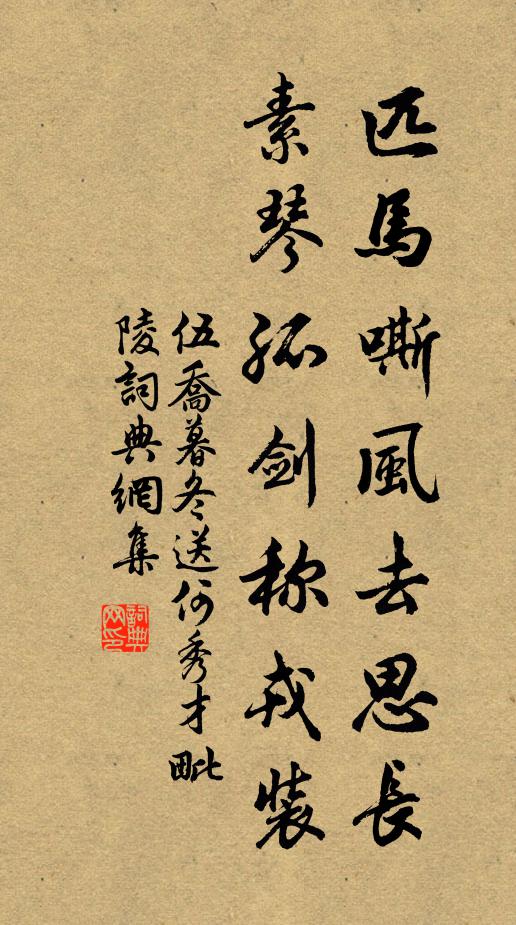 匹馬嘶風去思長
素琴孤剑称戎裝
伍喬暮冬送何秀才毗
陵詞典網集
詞典网印